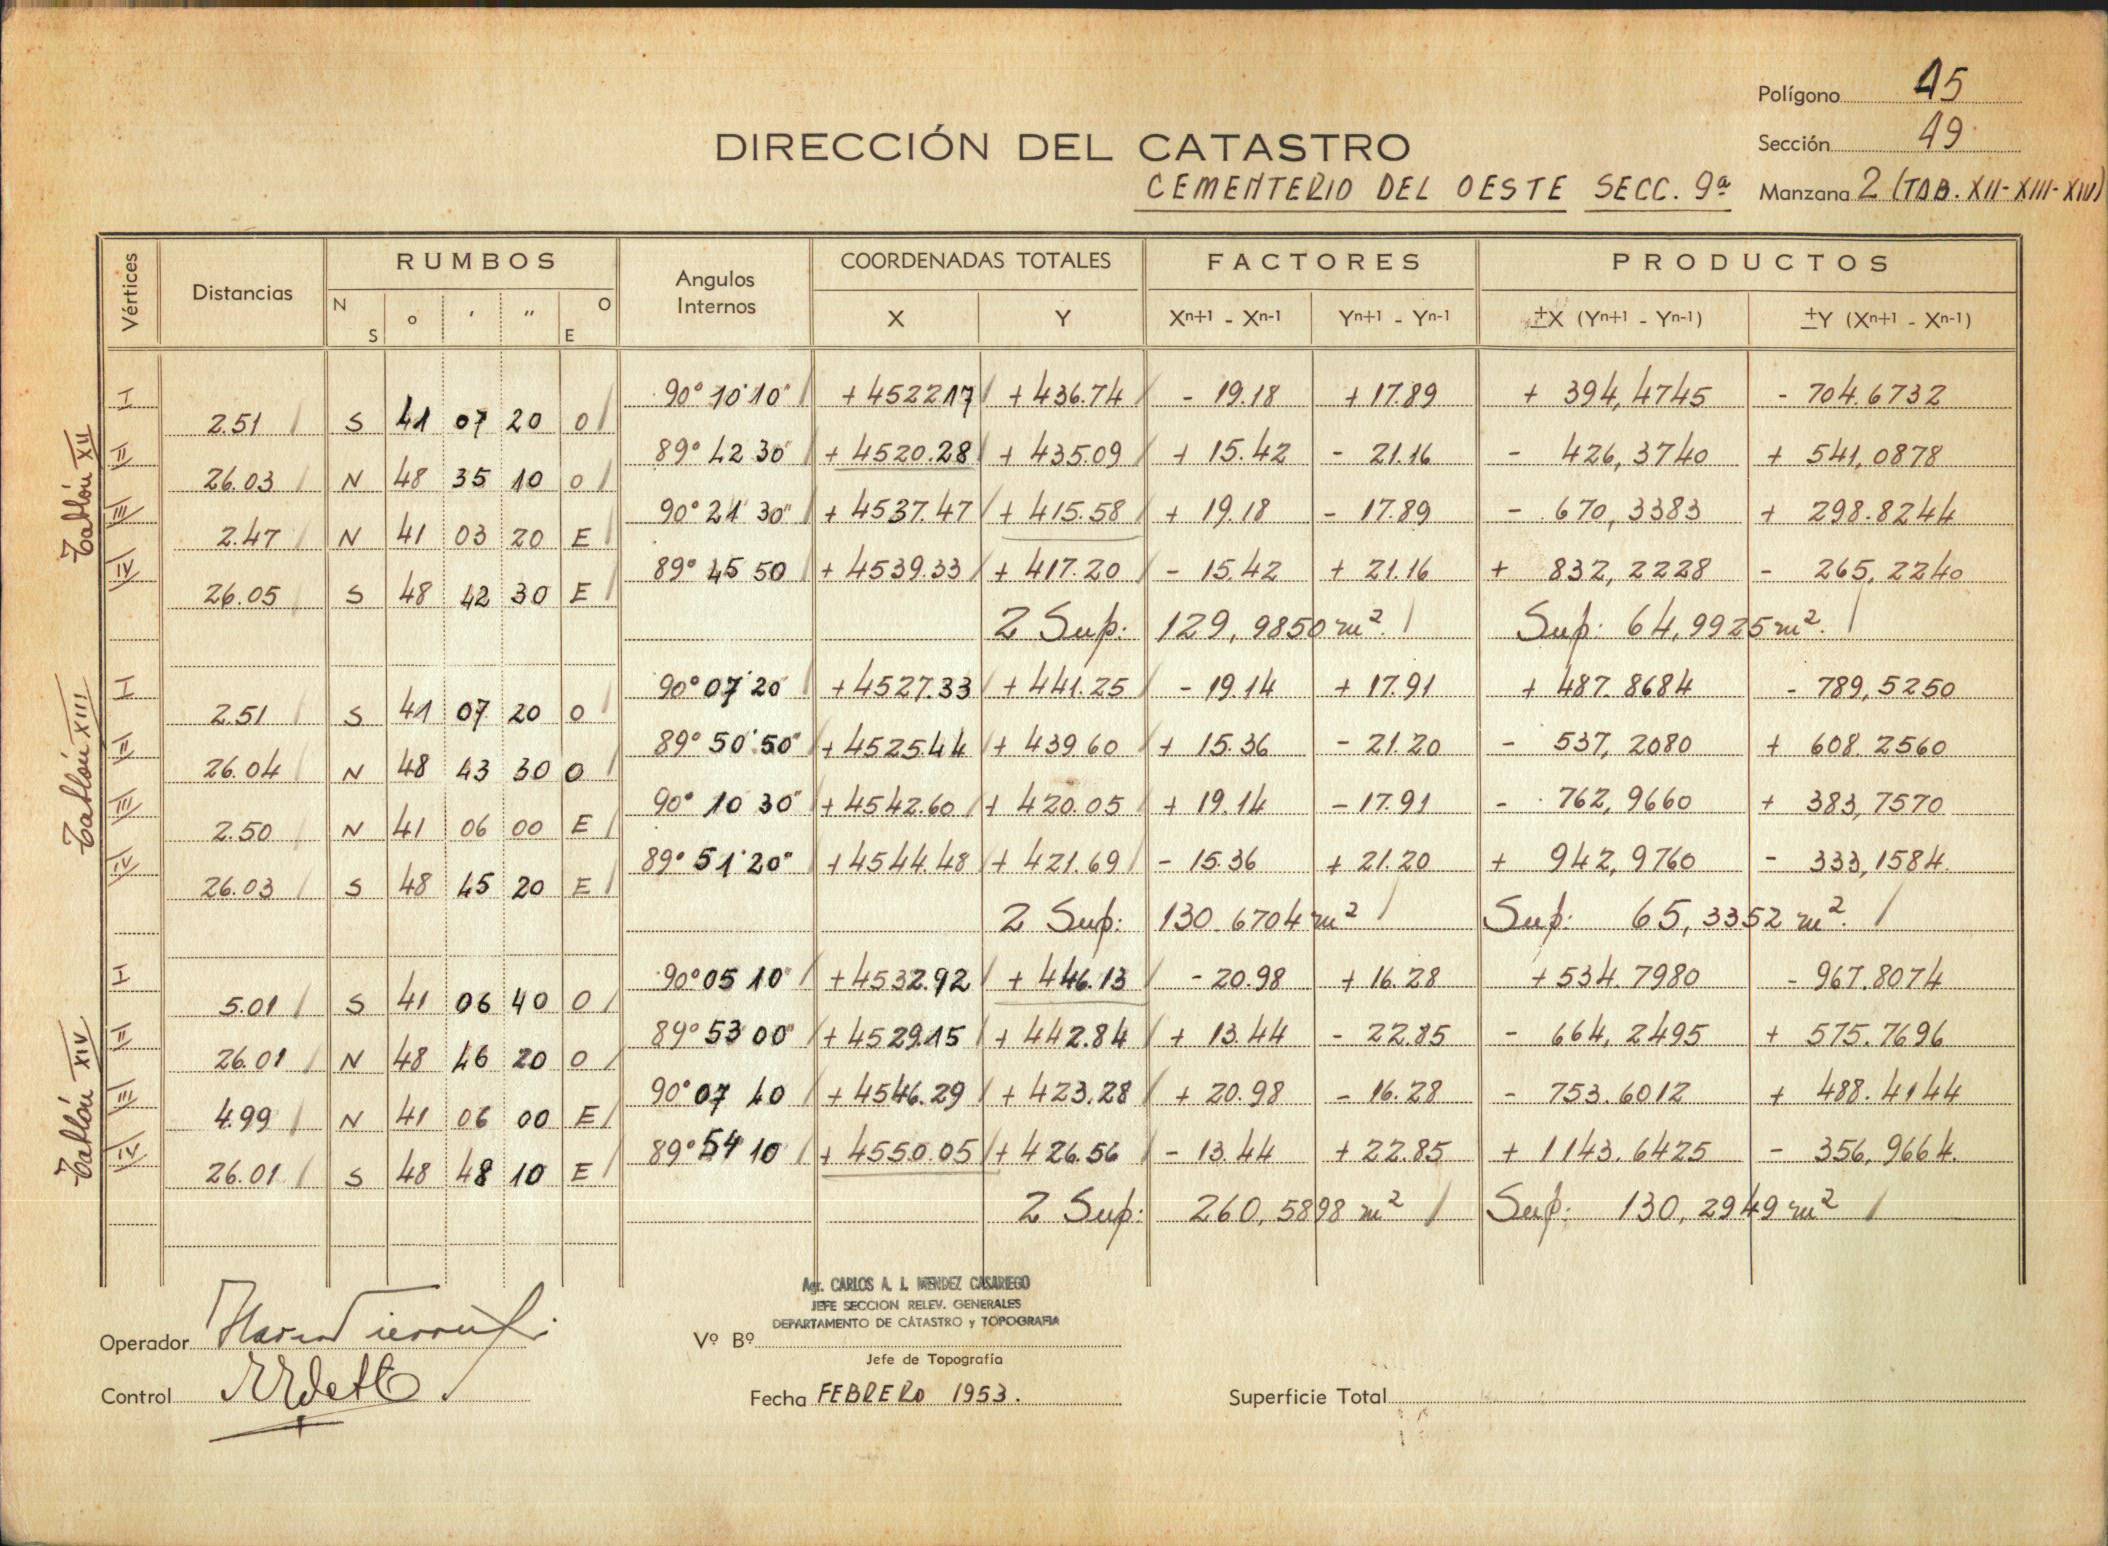 Polígono 45
Sección 49
DIRECCIÓN DEL CATASTRO
CEMENTERIO DEL OESTE SECC. 9ª Manzana 2 (TAB. XII-XIII-XIV)
Vértices Distancias RUMBOS Angulos Internos COORDENADAS TOTALES FACTORES PRODUCTOS
N S ° ' " O E X Y Xn+1 - Xn-1 Yn+1 - Yn-1 ±X (Yn+1 - Yn-1) ±Y (Xn+1 - Xn-1)
Tablón XII
I 90° 10' 10" + 4522 17 + 436.74 - 19.18 + 17.89 + 394,4745 - 704.6732
2.51 S 41 07 20 O
II 89° 42 30" + 4520.28 + 435.09 + 15.42 - 21.16 - 426,3740 + 541,0878
26.03 N 48 35 10 O
III 90° 21' 30" + 4537.47 + 415.58 + 19.18 - 17.89 - 670,3383 + 298.8244
2.47 N 41 03 20 E
IV 89° 45 50 + 4539.33 + 417.20 - 15.42 + 21.16 + 832,2228 - 265,2240
26.05 S 48 42 30 E
2 Sup: 129,9850 m². Sup: 64,9925 m².
Tablón XIII
I 90° 07' 20 + 4527.33 + 441.25 - 19.14 + 17.91 + 487.8684 - 789,5250
2.51 S 41 07 20 O
II 89° 50' 50" + 4525.44 + 439.60 + 15.36 - 21.20 - 537,2080 + 608.2560
26.04 N 48 43 30 O
III 90° 10 30" + 4542.60 + 420.05 + 19.14 - 17.91 - 762,9660 + 383,7570
2.50 N 41 06 00 E
IV 89° 51' 20" + 4544.48 + 421.69 - 15.36 + 21.20 + 942,9760 - 333,1584.
26.03 S 48 45 20 E
2 Sup: 130.6704 m² Sup: 65,3352 m².
Tablón XIV
I 90° 05 10" + 4532.92 + 446.13 - 20.98 + 16.28 + 534.7980 - 967.8074
5.01 S 41 06 40 O
II 89° 53 00" + 4529.15 + 442.84 + 13.44 - 22.85 - 664,2495 + 575.7696
26.01 N 48 46 20 O
III 90° 07 40 + 4546.29 + 423.28 + 20.98 - 16.28 - 753.6012 + 488.4144
4.99 N 41 06 00 E
IV 89° 54 10 + 4550.05 + 426.56 - 13.44 + 22.85 + 1143.6425 - 356,9664.
26.01 S 48 48 10 E
2 Sup: 260,5898 m² Sup: 130,2949 m²
Agr. CARLOS A. L. MENDEZ CASARIEGO
JEFE SECCION RELEV. GENERALES
DEPARTAMENTO DE CATASTRO y TOPOGRAFIA
Operador Vº Bº
Jefe de Topografía
Control Fecha FEBRERO 1953. Superficie Total